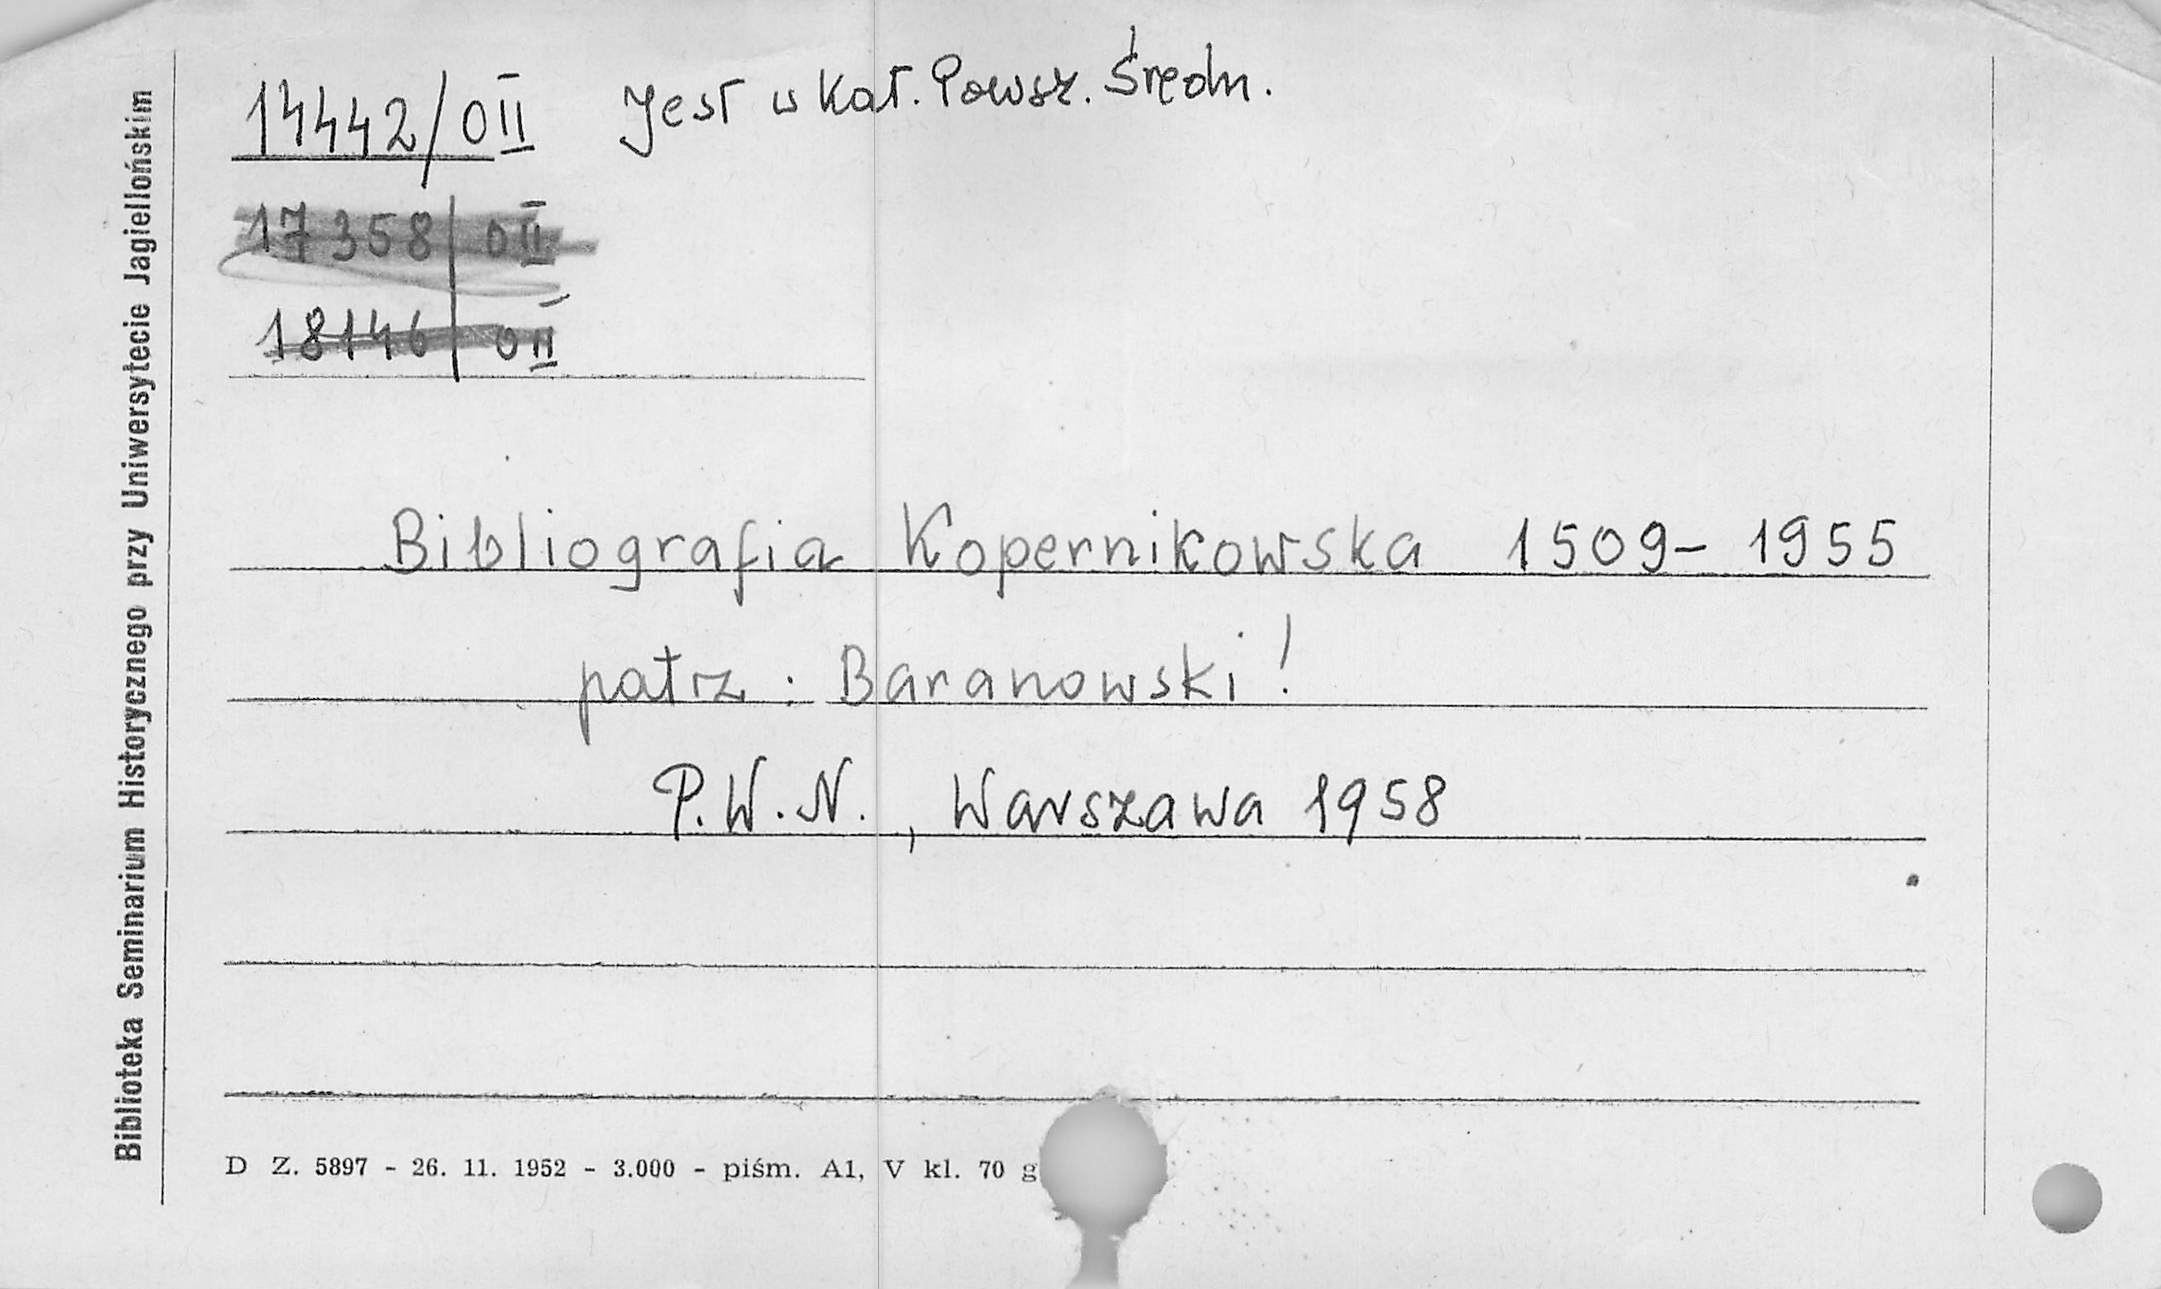 Biblioteka Seminarium Historycznego przy Uniwersytecie Jagiellońskim
14442/0II Jest w Kat. Powsz. Średn.
17358/0II
18146/0II
Bibliografia Kopernikowska 1509-1955
patrz: Baranowski!
P.W.N., Warszawa 1958
D Z. 5897 - 26. 11. 1952 - 3.000 - piśm. A1, V kl. 70 g